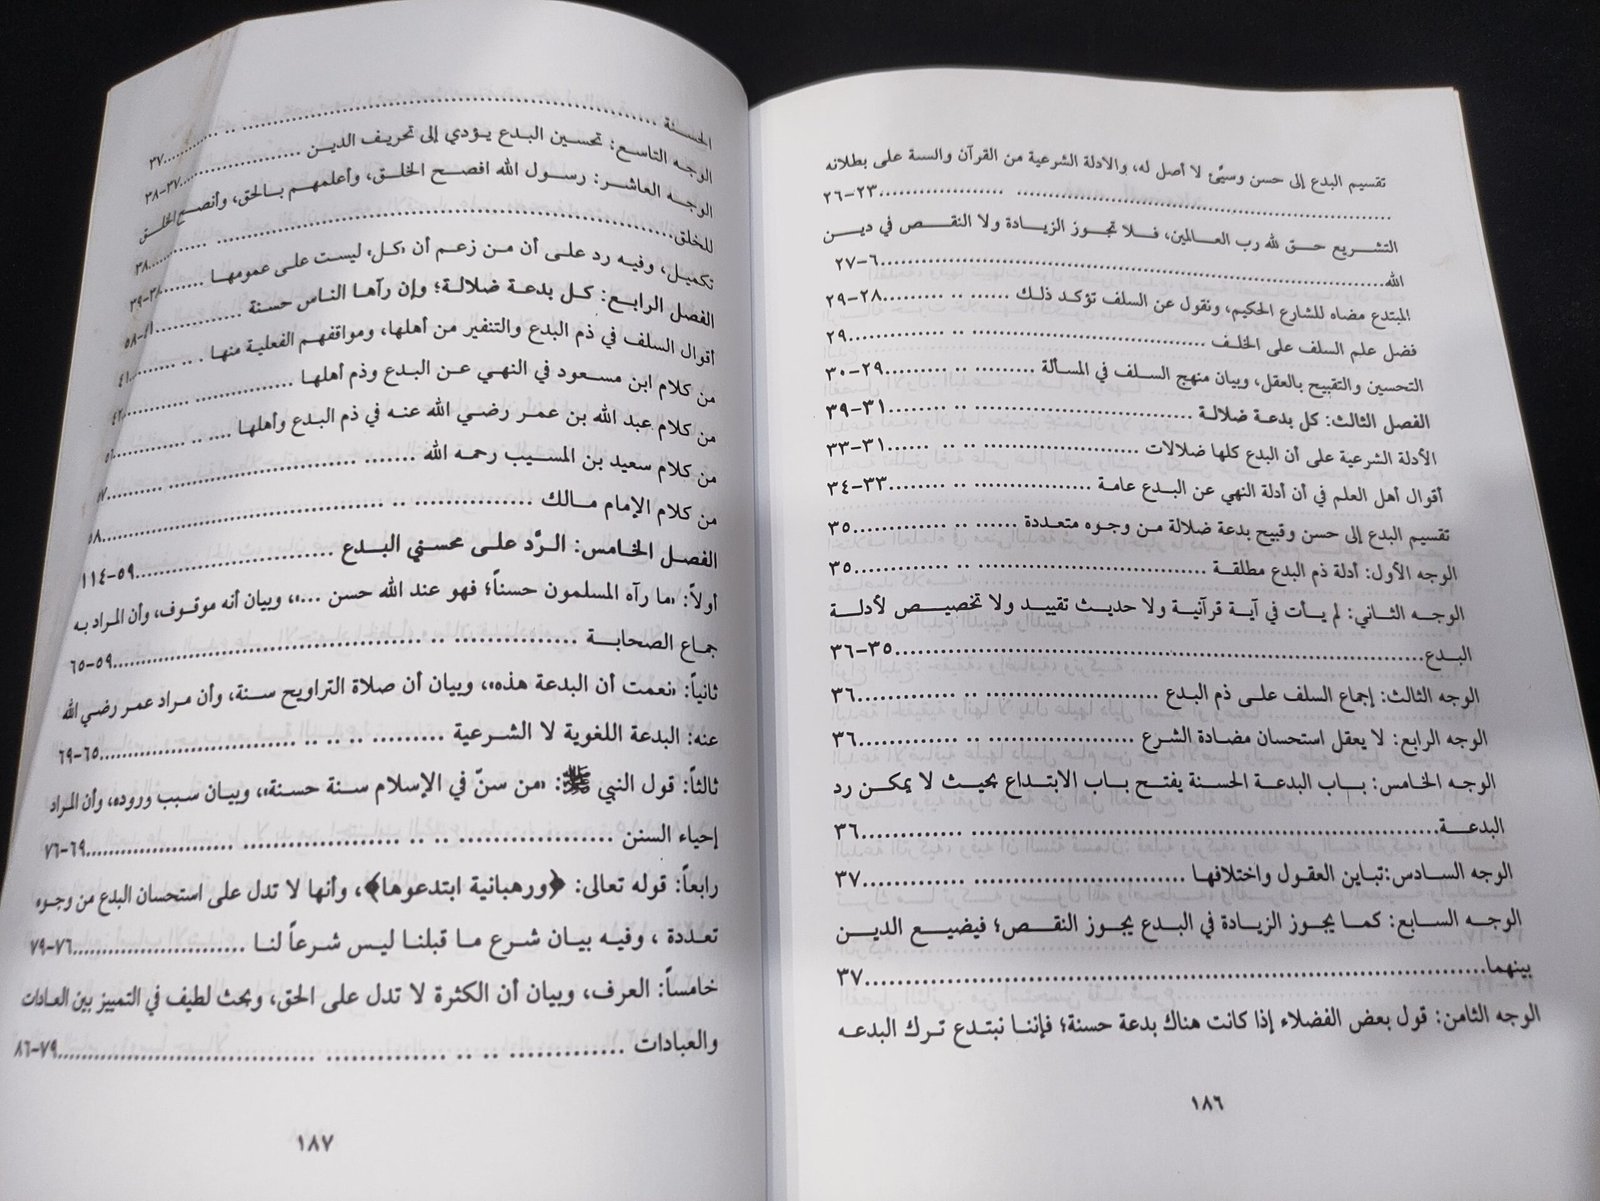 تقسيم البدع إلى حسن وسيّئ لا أصل له، والادلة الشرعية من القرآن والسنة على بطلانه
.................... ٢٣-٢٦
التشريع حق لله رب العالمين، فلا تجوز الزيادة ولا النقص في دين
الله.................... ٦-٢٧
المبتدع مضاه للشارع الحكيم، ونقول عن السلف تؤكد ذلك .................... ٢٨-٢٩
فضل علم السلف على الخلف .................... ٢٩
التحسين والتقبيح بالعقل، وبيان منهج السلف في المسألة .................... ٢٩-٣٠
الفصل الثالث: كل بدعة ضلالة .................... ٣١-٣٩
الأدلة الشرعية على أن البدع كلها ضلالات .................... ٣١-٣٣
أقوال أهل العلم في أن أدلة النهي عن البدع عامة .................... ٣٣-٣٤
تقسيم البدع إلى حسن وقبيح بدعة ضلالة من وجوه متعددة .................... ٣٥
الوجه الأول: أدلة ذم البدع مطلقة .................... ٣٥
الوجه الثاني: لم يأت في آية قرآنية ولا حديث تقييد ولا تخصيص لأدلة
البدع.................... ٣٥-٣٦
الوجه الثالث: إجماع السلف على ذم البدع .................... ٣٦
الوجه الرابع: لا يعقل استحسان مضادة الشرع .................... ٣٦
الوجه الخامس: باب البدعة الحسنة يفتح باب الابتداع بحيث لا يمكن رد
البدعة.................... ٣٦
الوجه السادس:تباين العقول واختلافها .................... ٣٧
الوجه السابع: كما يجوز الزيادة في البدع يجوز النقص؛ فيضيع الدين
بينهما.................... ٣٧
الوجه الثامن: قول بعض الفضلاء إذا كانت هناك بدعة حسنة؛ فإننا نبتدع ترك البدعه
١٨٦
الحسنة .................... ٣٧
الوجه التاسع: تحسين البدع يؤدي إلى تحريف الدين .................... ٣٧-٣٨
الوجه العاشر: رسول الله افصح الخلق، وأعلمهم بالحق، وأنصح الخلق
للخلق.................... ٣٨
تكميل، وفيه رد على أن من زعم أن «كل» ليست على عمومها .................... ٣٨-٣٩
الفصل الرابع: كل بدعة ضلالة؛ وإن رآها الناس حسنة .................... -٥٨
أقوال السلف في ذم البدع والتنفير من أهلها، ومواقفهم الفعلية منها .................... ٤١
من كلام ابن مسعود في النهي عن البدع وذم أهلها .................... ٤٢
من كلام عبد الله بن عمر رضي الله عنه في ذم البدع وأهلها ....................
من كلام سعيد بن المسيب رحمه الله ....................
من كلام الإمام مالك ....................
الفصل الخامس: الرَّد على محسني البدع .................... ٥٩-١١٤
أولاً: «ما رآه المسلمون حسناً؛ فهو عند الله حسن ...»، وبيان أنه موقوف، وأن المراد به
جماع الصحابة .................... ٥٩-٦٥
ثانياً: «نعمت أن البدعة هذه»، وبيان أن صلاة التراويح سنة، وأن مراد عمر رضي الله
عنه: البدعة اللغوية لا الشرعية .................... ٦٥-٦٩
ثالثاً: قول النبي ﷺ: «من سنّ في الإسلام سنة حسنة»، وبيان سبب وروده، وأن المراد
إحياء السنن .................... ٦٩-٧٦
رابعاً: قوله تعالى: ﴿ورهبانية ابتدعوها﴾، وأنها لا تدل على استحسان البدع من وجوه
تعددة ، وفيه بيان شرع ما قبلنا ليس شرعاً لنا .................... ٧٦-٧٩
خامساً: العرف، وبيان أن الكثرة لا تدل على الحق، وبحث لطيف في التمييز بين العادات
والعبادات .................... ٧٩-٨٦
١٨٧